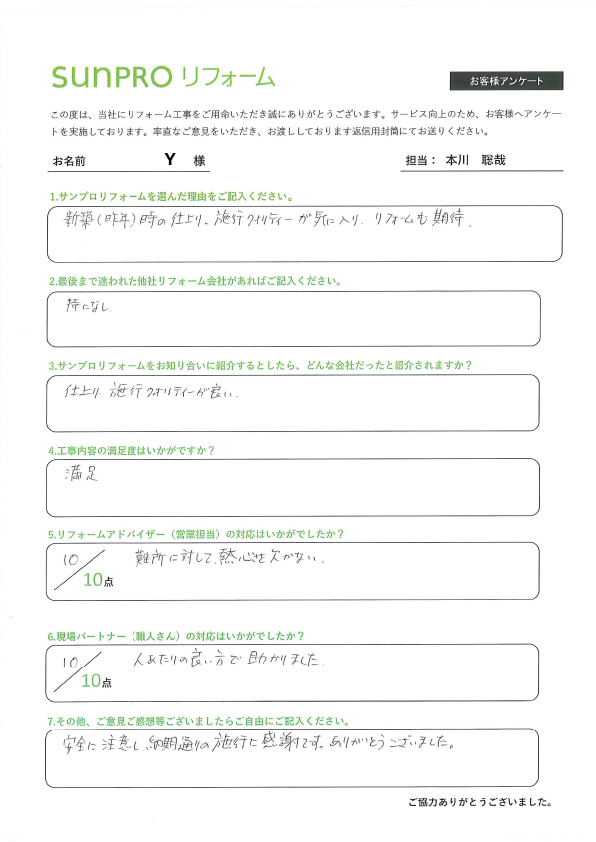 sunPRO リフォーム
お客様アンケート
この度は、当社にリフォーム工事をご用命いただき誠にありがとうございます。サービス向上のため、お客様へアンケー
トを実施しております。率直なご意見をいただき、お渡ししております返信用封筒にてお送りください。
お名前 Y 様 担当： 本川 聡哉
1.サンプロリフォームを選んだ理由をご記入ください。
新築(昨年)時の仕上り、施行クオリティーが気に入り、リフォームも期待。
2.最後まで迷われた他社リフォーム会社があればご記入ください。
特になし
3.サンプロリフォームをお知り合いに紹介するとしたら、どんな会社だったと紹介されますか？
仕上り、施行クオリティーが良い。
4.工事内容の満足度はいかがですか？
満足
5.リフォームアドバイザー（営業担当）の対応はいかがでしたか？
10/10点 難所に対して、熱心さを欠かない。
6.現場パートナー（職人さん）の対応はいかがでしたか？
10/10点 人あたりの良い方で助かりました。
7.その他、ご意見ご感想等ございましたらご自由にご記入ください。
安全に注意し、納期通りの施行に感謝です。ありがとうございました。
ご協力ありがとうございました。